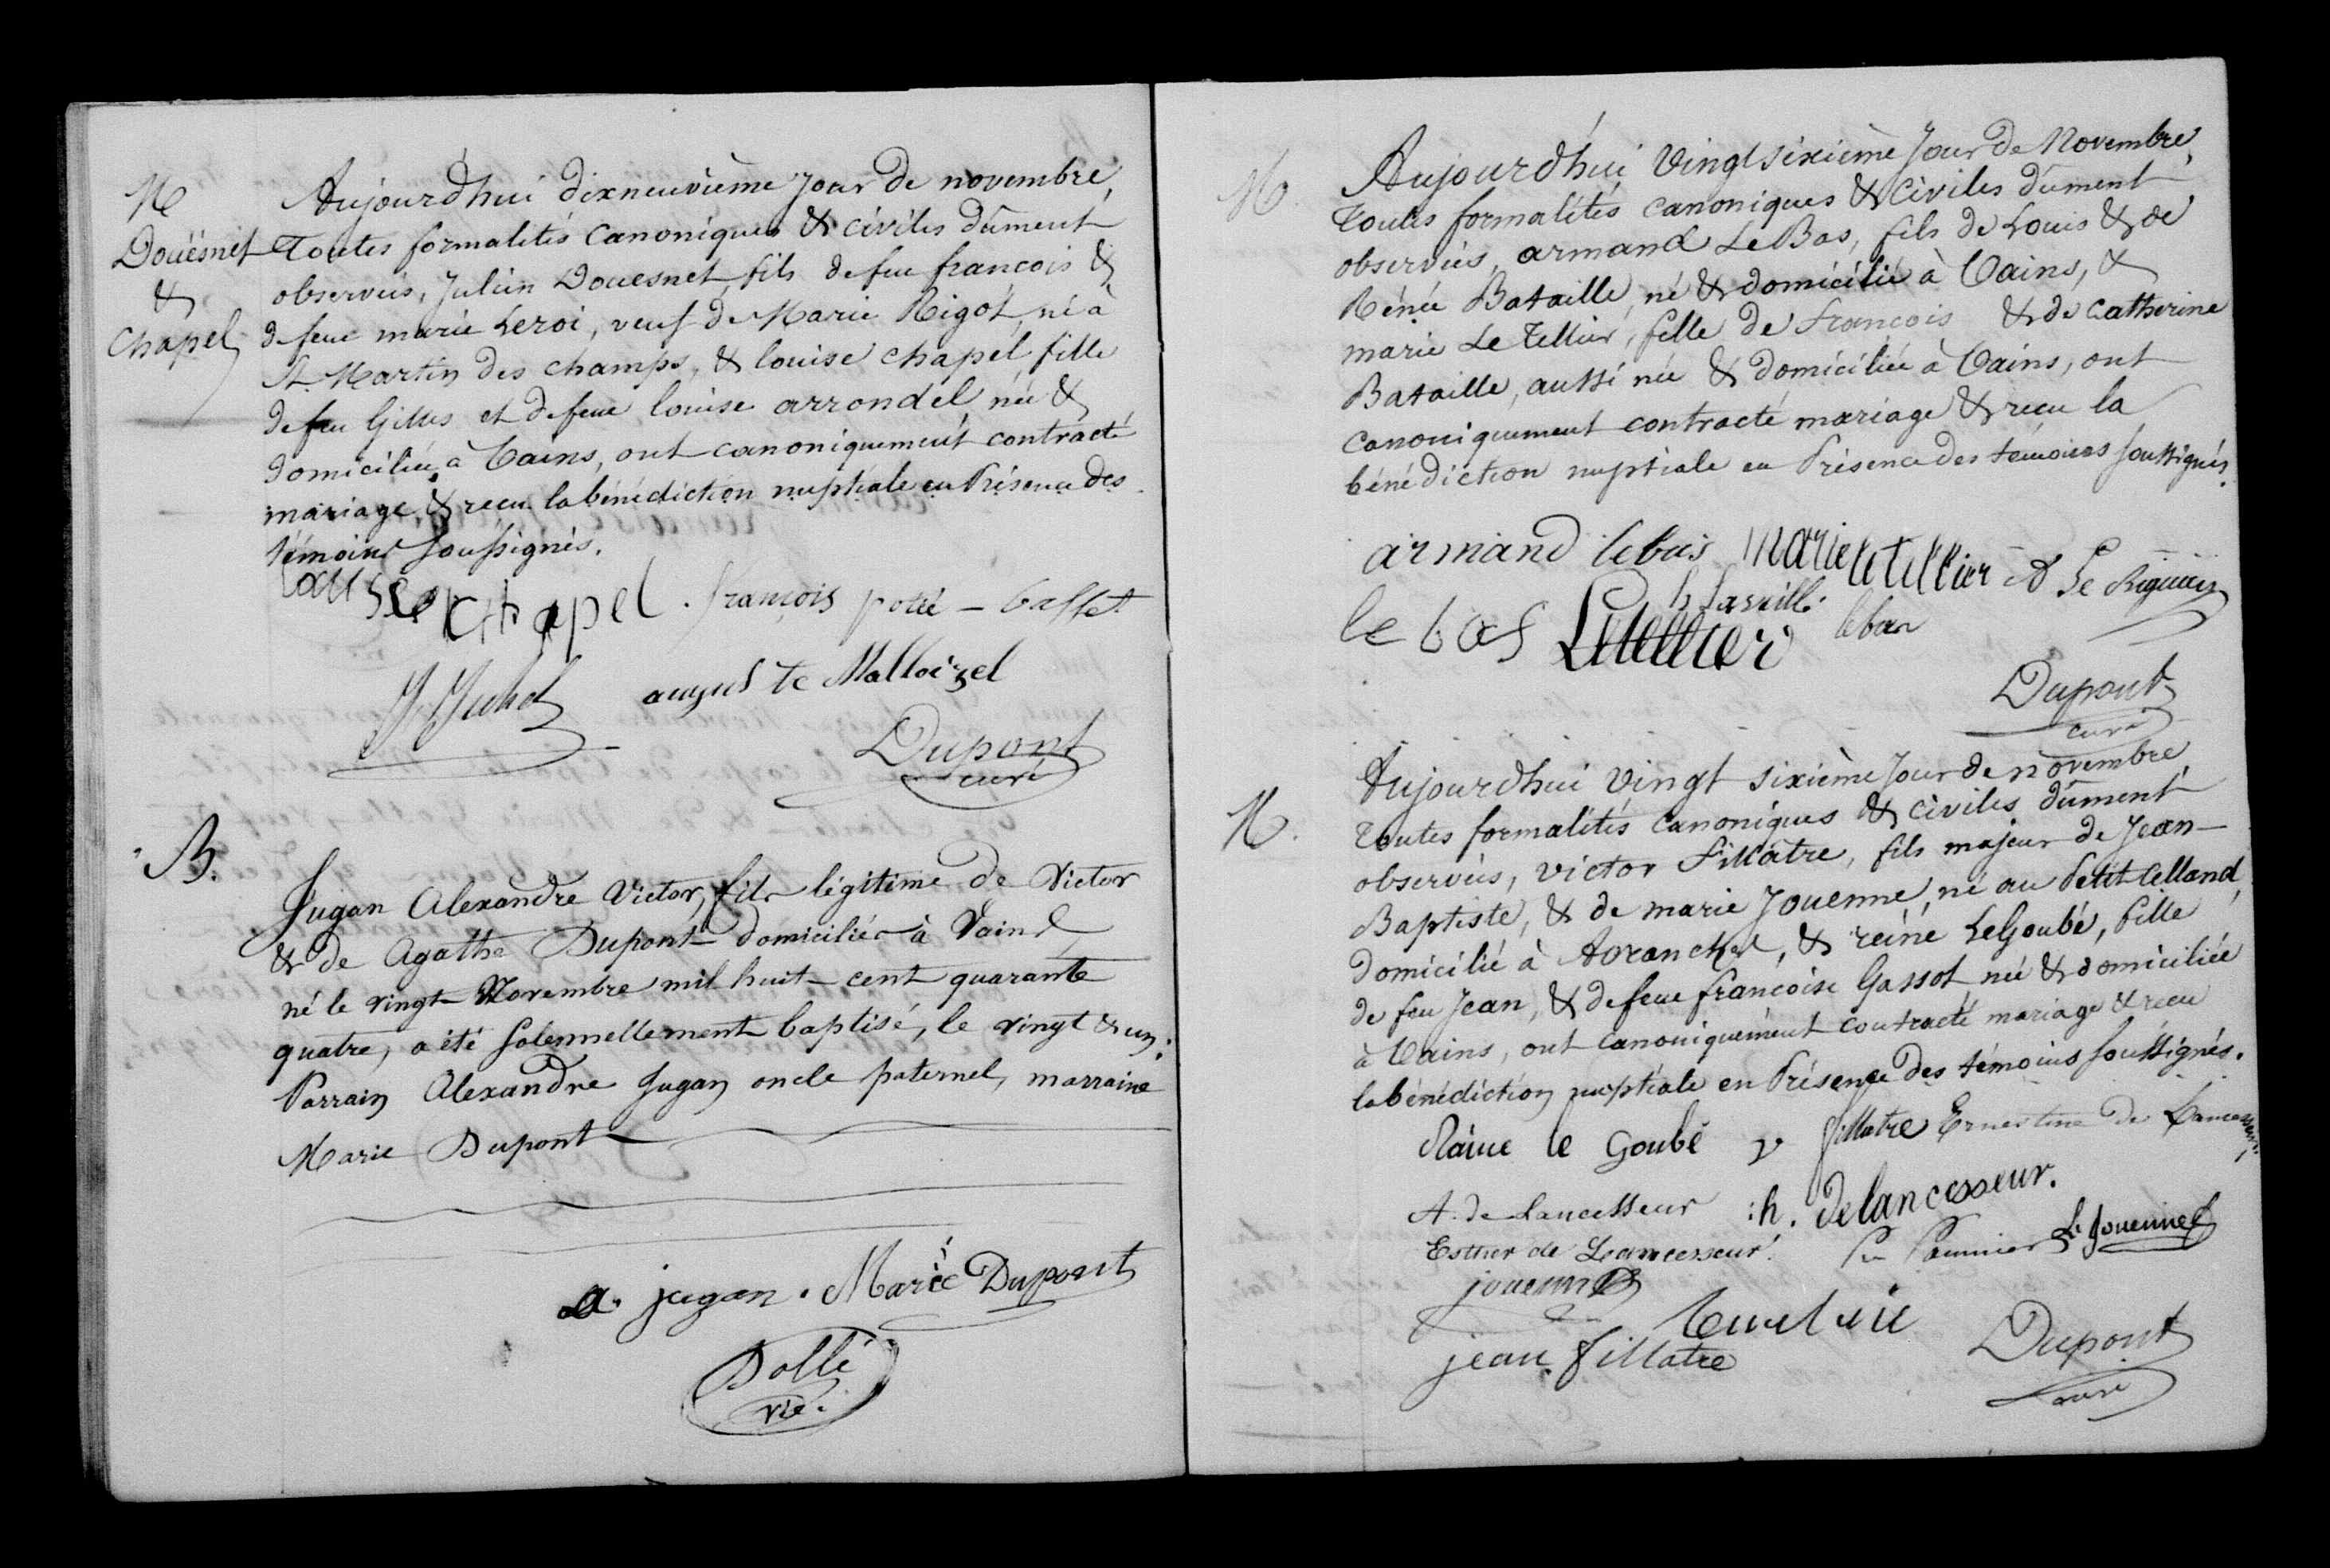 M
Douësnet
&
Chapel
Aujourd'hui dixneuvième jour de novembre,
Toutes formalités canoniques & civiles dûment
observées, Julien Douesnet, fils de feu françois &
de feue marie Leroi, veuf de Marie Rigot, né à
St Martin des champs, & louise chapel, fille
de feu Gilles et de feue louise arrondel, née &
domiciliée à Vains, ont canoniquement contracté
mariage & reçu la bénédiction nuptiale en Présence des
témoins soussignés.
chapel . françois potié - basset
auguste Malloizel
Dupont
curé
B.
Jugan Alexandre Victor, fils légitime de Victor
& de Agathe Dupont domiciliés à Vains
né le vingt Novembre mil huit-cent quarante
quatre, a été solennellement baptisé, le vingt & un;
Parrain Alexandre Jugan oncle paternel, marraine
Marie Dupont
a. jugan . Marie Dupont
Dollé
vic.
M.
Aujourd'hui vingt sixième jour de Novembre,
toutes formalités canoniques & civiles dûment
observées, armand Le Bas, fils de Louis & de
Rénée Bataille, né & domicilié à Vains, &
marie Le Tellier, fille de François & de Catherine
Bataille, aussi née & domiciliée à Vains, ont
canoniquement contracté mariage & reçu la
bénédiction nuptiale en Présence des témoins soussignés.
armand lebas marie letellier
le bas Letellier lebas
Dupont
curé
M.
Aujourd'hui vingt sixième jour de novembre
toutes formalités canoniques & civiles dûment
observées, victor Fillâtre, fils majeur de Jean-
Baptiste, & de marie Jouenne, né au Petit Celland,
domicilié à Avranches, & reine LeGoubé, fille
de feu Jean, & de feue françoise Gassot née & domiciliée
à Vains, ont canoniquement contracté mariage & reçu
la bénédiction nuptiale en Présence des témoins soussignés.
Raine le Goubé v fillatre Ernestine de Lancesseur
A. de Lancesseur h. de lancesseur.
Esther de Lancesseur. Jouenne
jouenne
jean fillatre
Dupont
curé